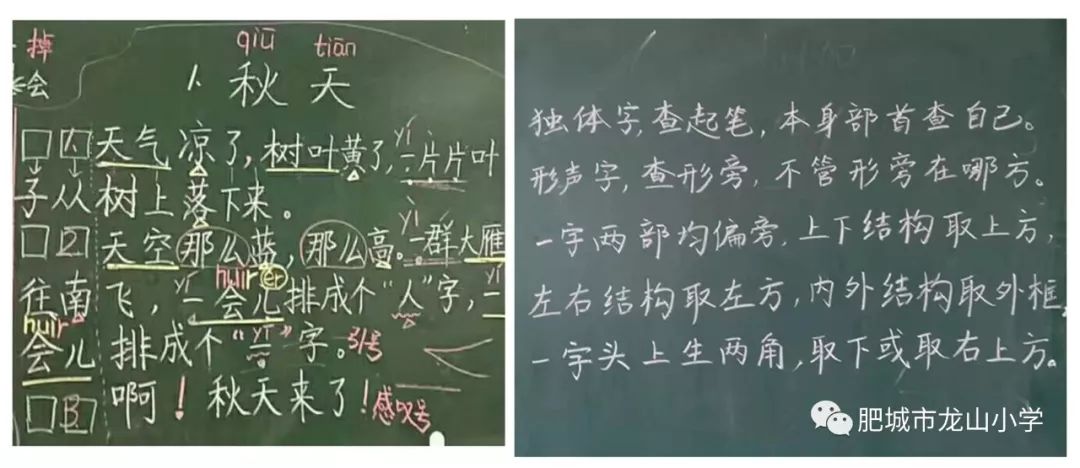 掉
会
qiū tiān
1. 秋天
天气凉了,树叶黄了,一片片叶
yí
子从树上落下来。
yì
天空那么蓝,那么高。一群大雁
huìr er
往南飞,一会儿排成个“人”字,一
yí yí
huìr
会儿排成个“一”字。引号
yī
啊!秋天来了!感叹号
独体字,查起笔,本身部首查自己。
形声字,查形旁,不管形旁在哪方。
一字两部均偏旁,上下结构取上方,
左右结构取左方,内外结构取外框,
一字头上生两角,取下或取右上方。
肥城市龙山小学